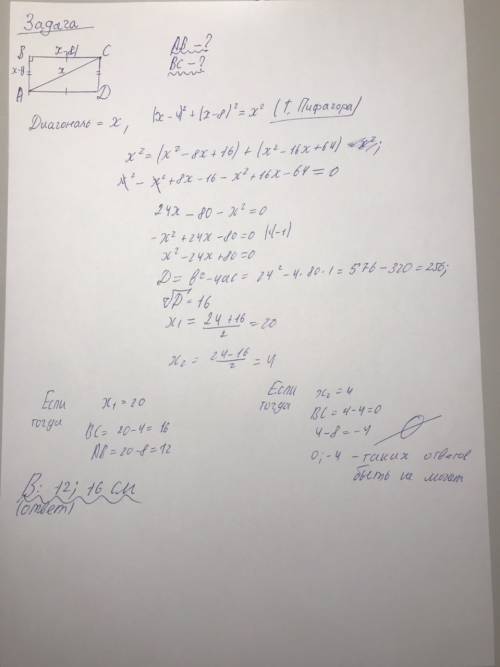 Задача
B x-4 C
x-8 x
A D
AB - ?
BC - ?
Диагональ = x, (x-4)² + (x-8)² = x² (т. Пифагора)
x² = (x² - 8x + 16) + (x² - 16x + 64)
x² - x² + 8x - 16 - x² + 16x - 64 = 0
24x - 80 - x² = 0
-x² + 24x - 80 = 0 |·(-1)
x² - 24x + 80 = 0
D = b² - 4ac = 24² - 4·80·1 = 576 - 320 = 256;
√D = 16
x₁ = (24+16)/2 = 20
x₂ = (24-16)/2 = 4
Если x₁ = 20
тогда
BC = 20-4 = 16
AB = 20-8 = 12
Если x₂ = 4
тогда
BC = 4-4 = 0
4-8 = -4
0; -4 - таких ответов
быть не может
В: 12; 16 см
(ответ)